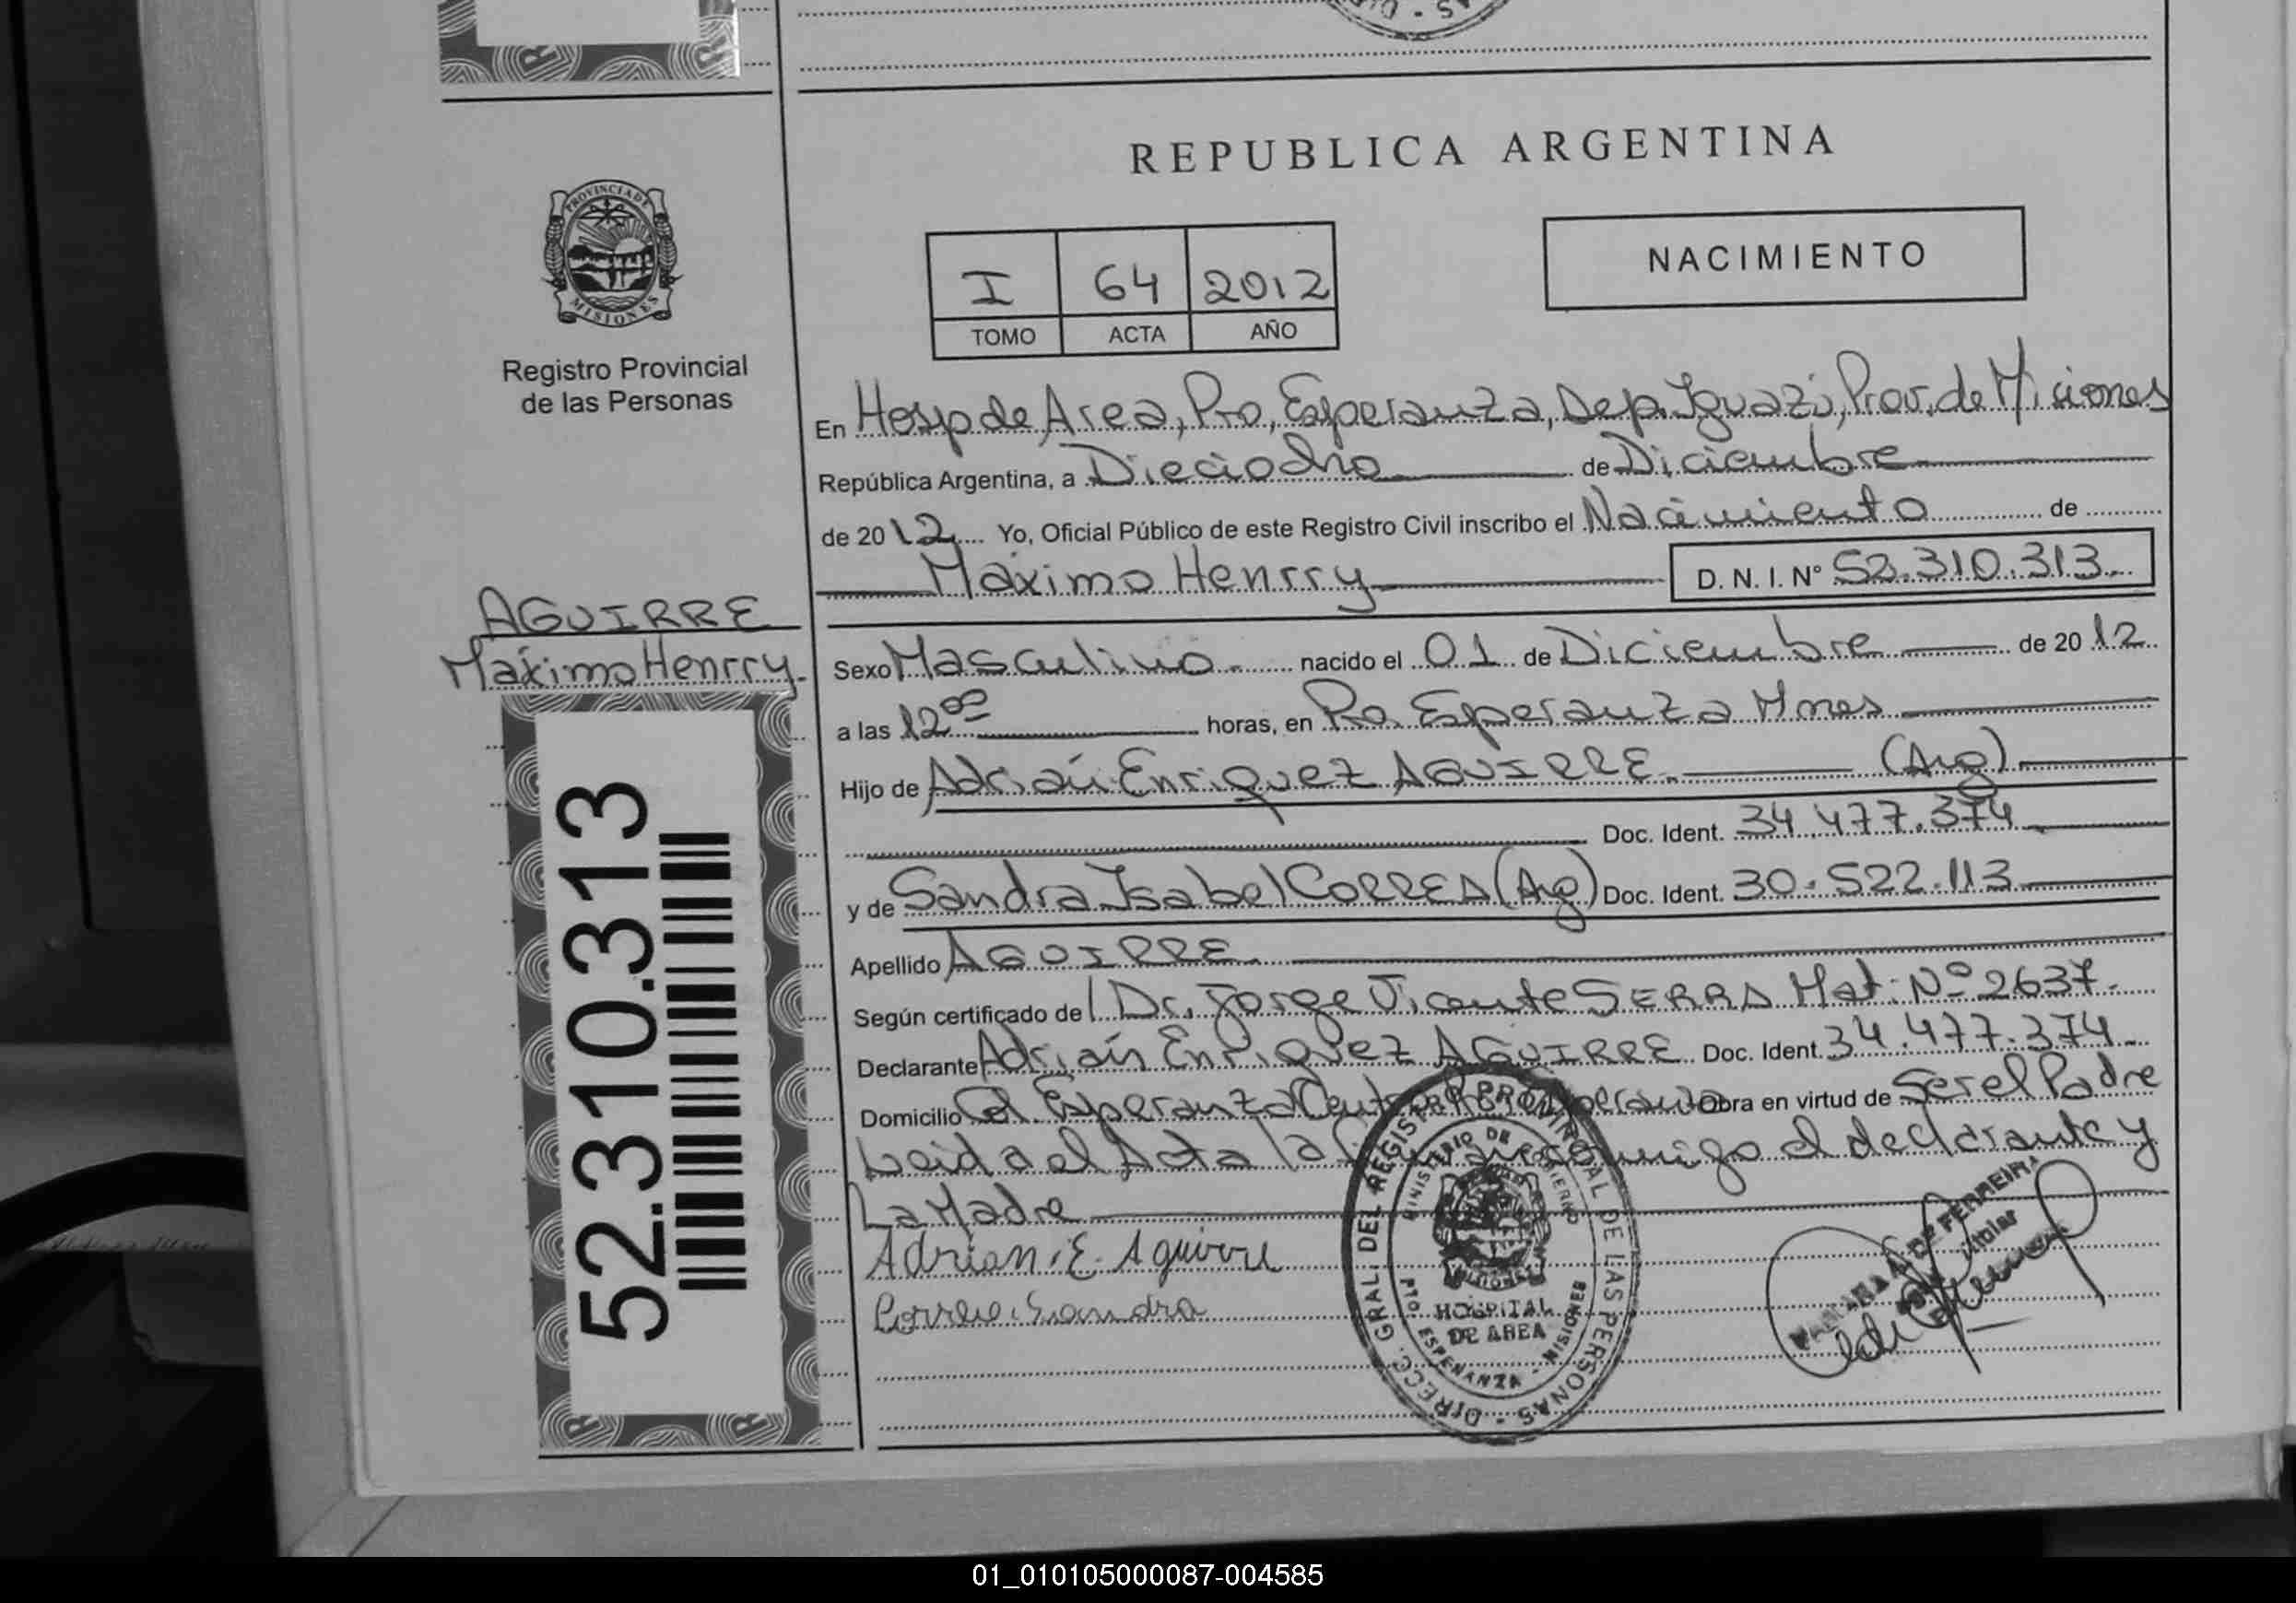 REPUBLICA ARGENTINA
PROVINCIA DE
MISIONES
Registro Provincial
de las Personas
I 64 2012
TOMO ACTA AÑO
NACIMIENTO
En Hosp de Area, Pto, Esperanza, Dep. Iguazú, Prov. de Misiones
República Argentina, a Dieciocho de Diciembre
de 2012 Yo, Oficial Público de este Registro Civil inscribo el Nacimiento de
Máximo Henrry D. N. I. Nº 52.310.313
AGUIRRE
Máximo Henrry
52.310.313
Sexo Masculino nacido el 01 de Diciembre de 2012
a las 12 00 horas, en Pto. Esperanza Mnes
Hijo de Adrián Enriquez AGUIRRE (Arg)
Doc. Ident. 34.477.374
y de Sandra Isabel CORREA (Arg) Doc. Ident. 30.522.113
Apellido AGUIRRE
Según certificado del Dr. Jorge Vicente SERRA Mat. Nº 2637
Declarante Adrián Enriquez AGUIRRE Doc. Ident. 34.477.374
Domicilio Esperanza Obra en virtud de Ser el Padre
Leida el Acta la conmigo el declarante y
La Madre
Adrian E. Aguirre
Correa Sandra
DIRECC. GRAL. DEL REGISTRO PROVINCIAL DE LAS PERSONAS
MINISTERIO DE GOBIERNO
MISIONES
HOSPITAL
DE AREA
PTO ESPERANZA - MISIONES
FERREIRA
Titular
01_010105000087-004585